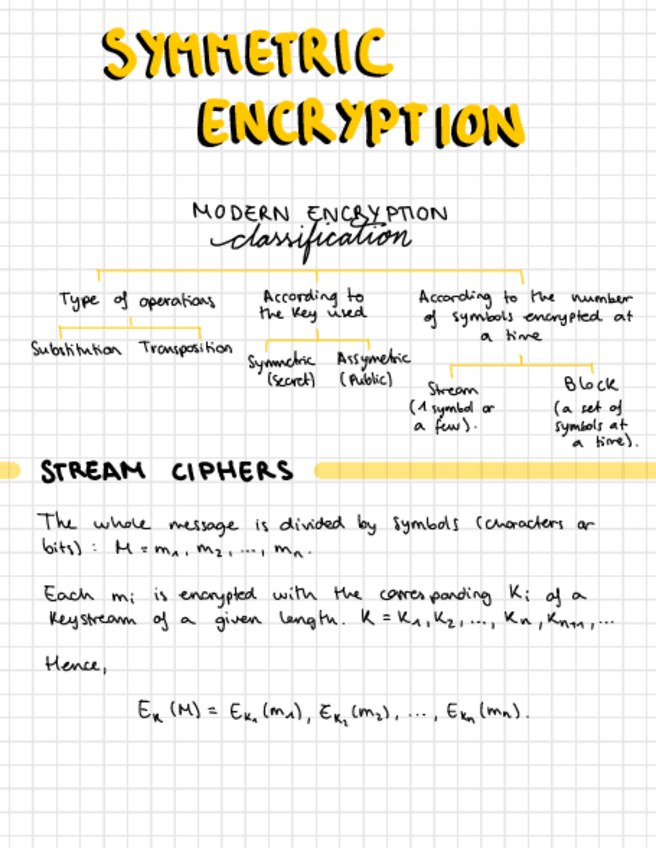 SYMMETRIC
ENCRYPTION
MODERN ENCRYPTION
classification
Type of operations
Substitution Transposition
According to
the Key used
Symmetric
(Secret)
Assymetric
(Public)
According to the number
of symbols encrypted at
a time
Stream
(1 symbol or
a few).
Block
(a set of
symbols at
a time).
STREAM CIPHERS
The whole message is divided by symbols (characters or
bits) : M = m₁, m₂, ..., mₙ.
Each mᵢ is encrypted with the corresponding Kᵢ of a
Keystream of a given length. K = K₁, K₂, ..., Kₙ, Kₙ₊₁, ...
Hence,
E_K (M) = E_K₁ (m₁), E_K₂ (m₂), ..., E_Kₙ (mₙ).